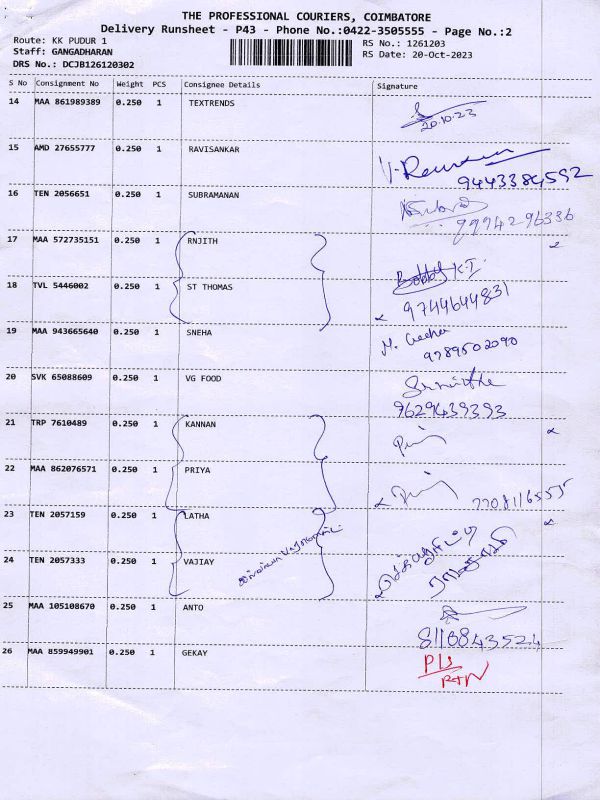 THE PROFESSIONAL COURIERS, COIMBATORE
Delivery Runsheet - P43 - Phone No.:0422-3505555 - Page No.:2
Route: KK PUDUR 1
RS No.: 1261203
Staff: GANGADHARAN
RS Date: 20-Oct-2023
DRS No.: DCJB126120302
S No Consignment No Weight PCS Consignee Details Signature
14 MAA 861989389 0.250 1 TEXTRENDS
20.10.23
15 AMD 27655777 0.250 1 RAVISANKAR
9443384592
16 TEN 2056651 0.250 1 SUBRAMANAN
9994296336
17 MAA 572735151 0.250 1 RNJITH
Bobby K.I
18 TVL 5446002 0.250 1 ST THOMAS
9744644831
19 MAA 943665640 0.250 1 SNEHA
9789502090
20 SVK 65088609 0.250 1 VG FOOD
9629439393
21 TRP 7610489 0.250 1 KANNAN
22 MAA 862076571 0.250 1 PRIYA
23 TEN 2057159 0.250 1 LATHA
24 TEN 2057333 0.250 1 VAJIAY
25 MAA 105108670 0.250 1 ANTO
8116843524
26 MAA 859949901 0.250 1 GEKAY
RTN